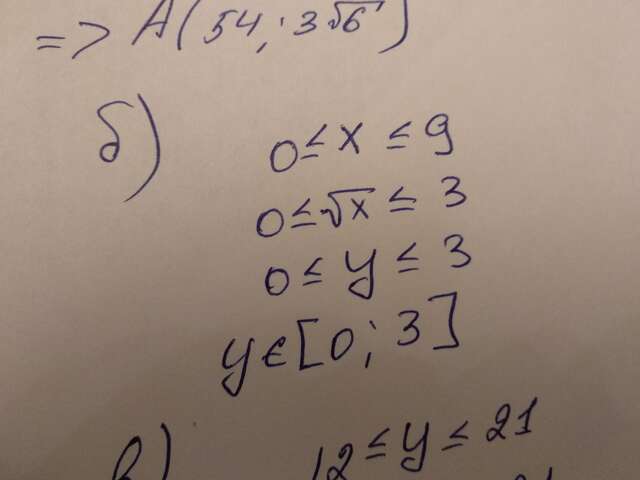 => A(54; 3√6)
б) 0 ≤ x ≤ 9
0 ≤ √x ≤ 3
0 ≤ y ≤ 3
y ∈ [0; 3]
в) 12 ≤ y ≤ 21